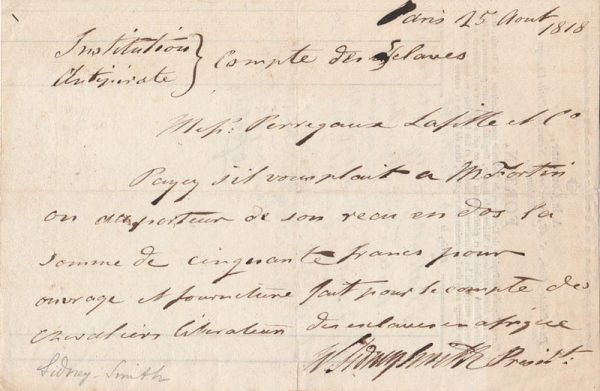 Paris 25 Aout
1818
Institution
Antipirate } Compte des Esclaves
Mess.s Perregaux Lafitte et Co
Payez s'il vous plait a M Fortin
ou au porteur de son recu en dos la
somme de cinquante francs pour
ouvrage et fourniture fait pour le compte des
chevaliers liberateurs des esclaves en afrique
W Sidney Smith Presidt.
Sidney-Smith